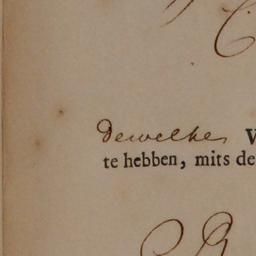 dewelke V
te hebben, mits de